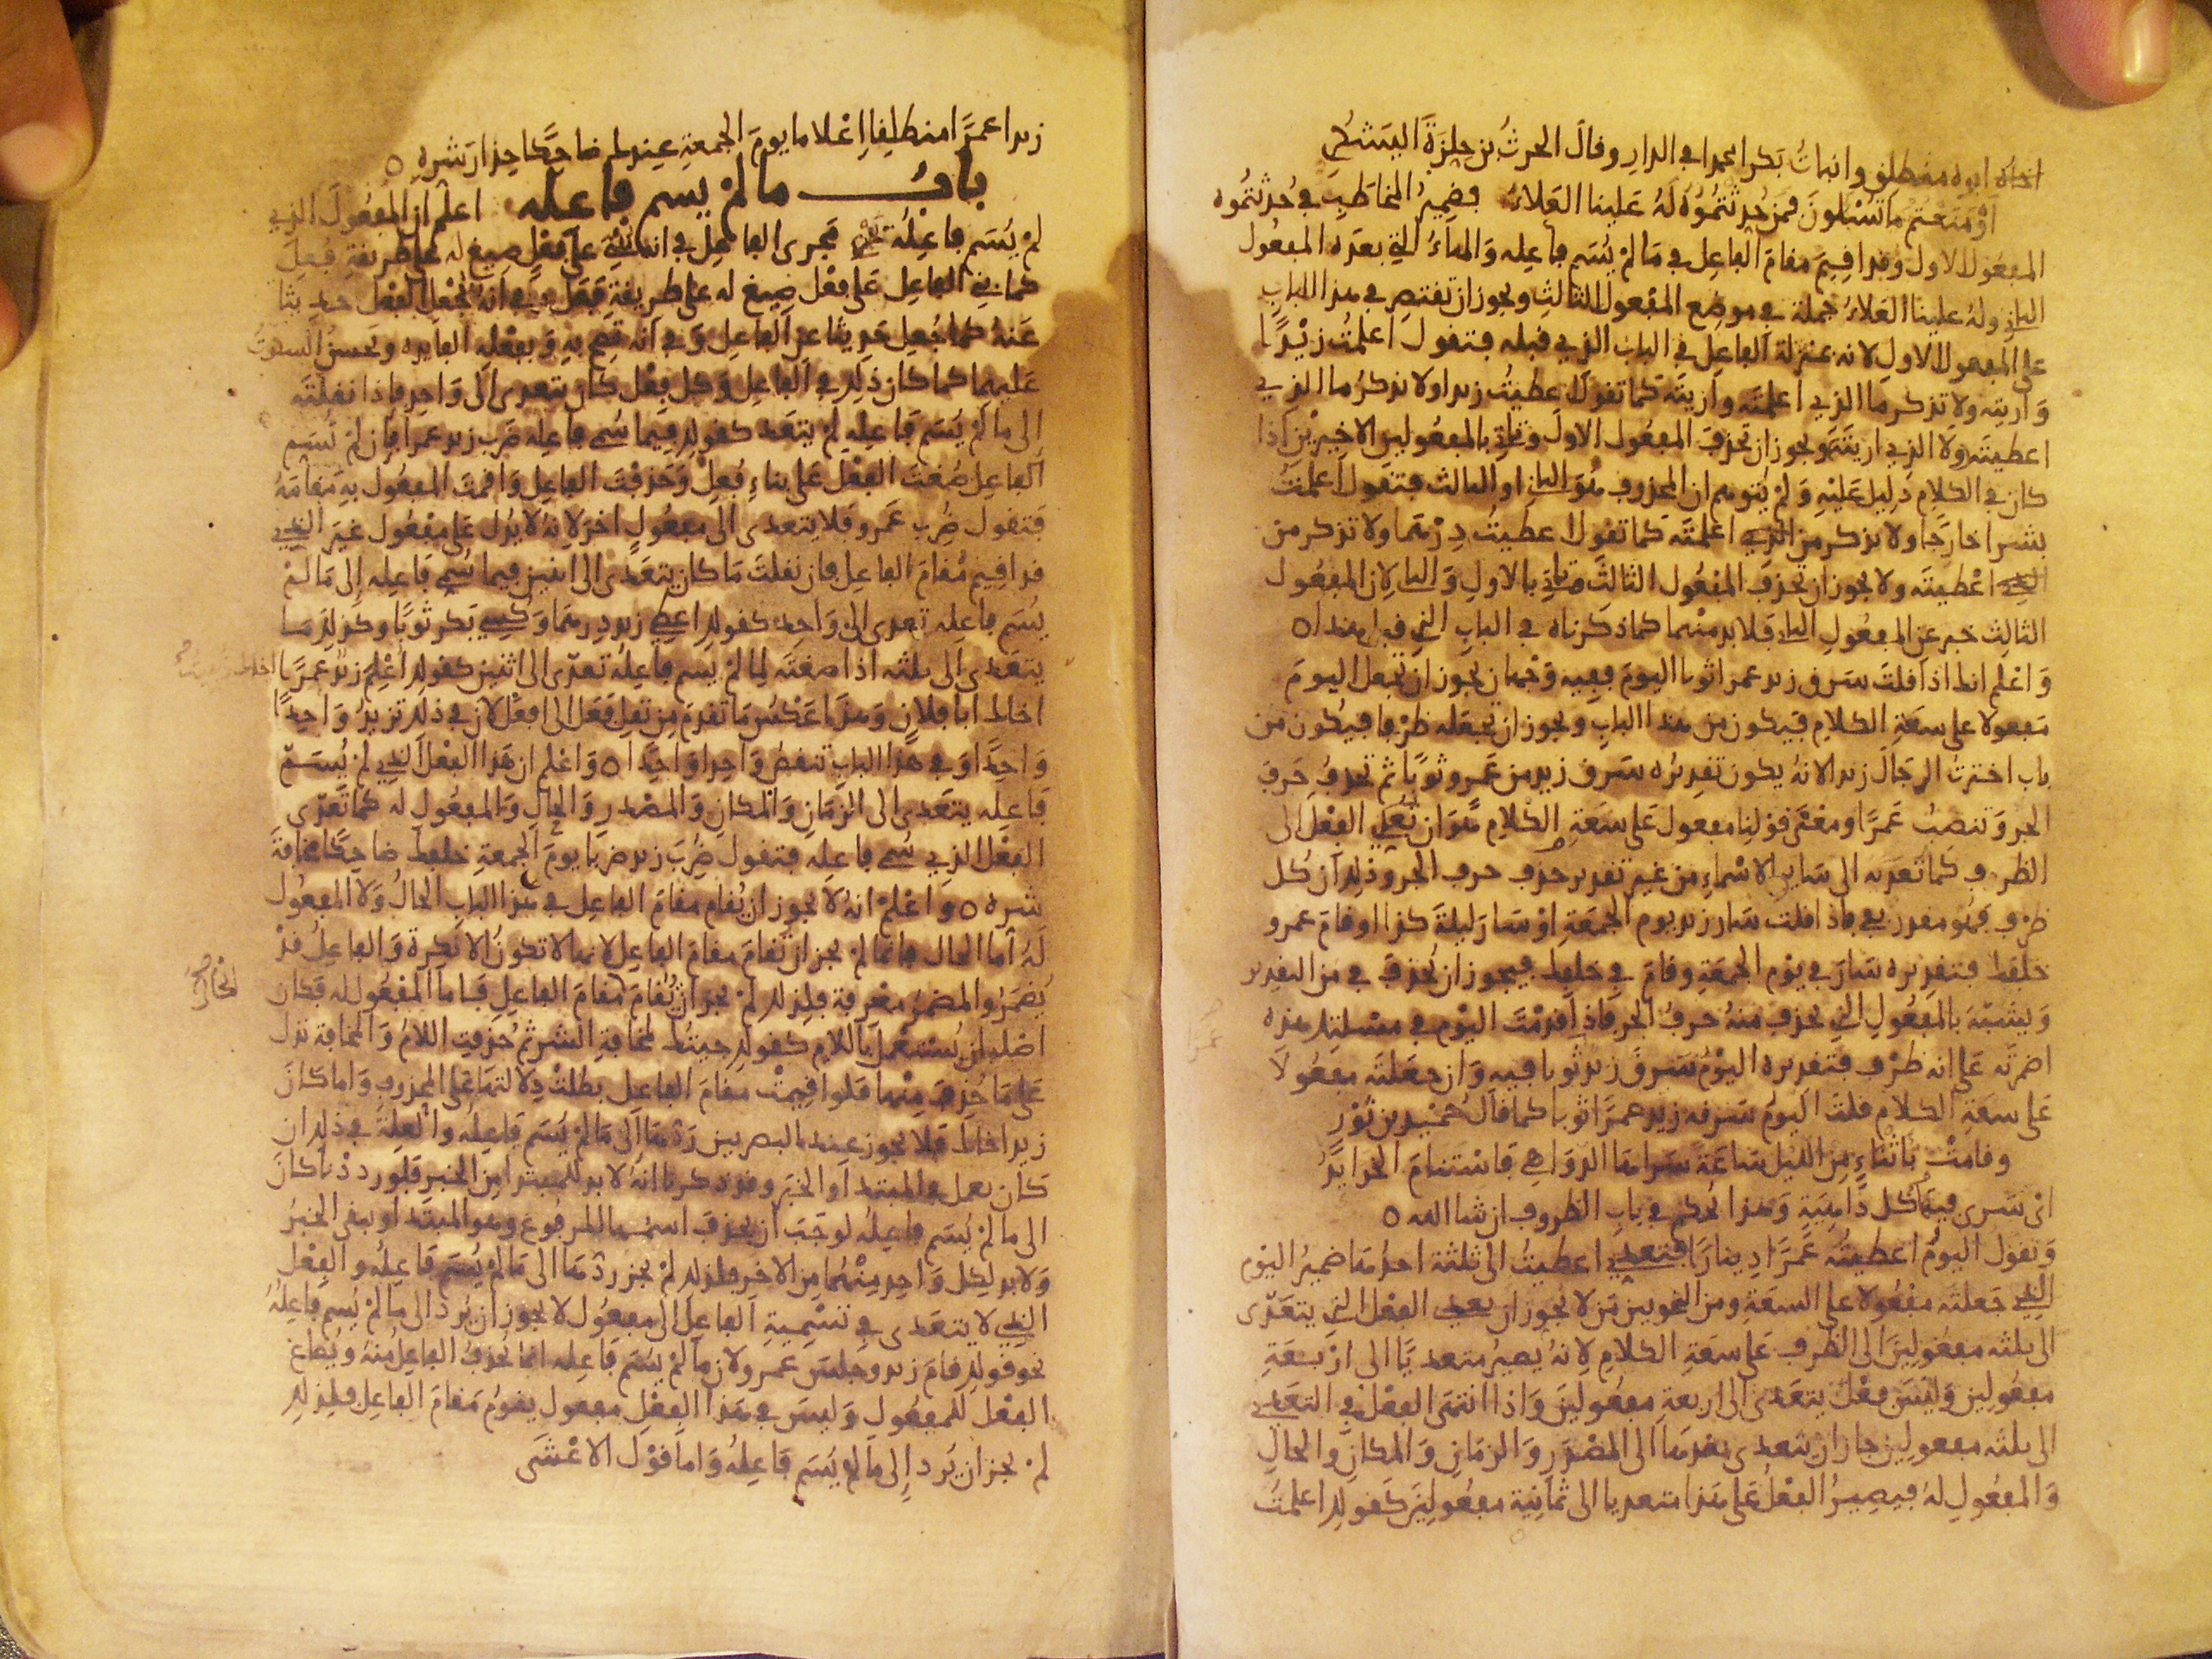 اخاك ابوه منطلق وانبات بكرا محمدا في الدار وقال الحرث بن حلزة اليشكري
او منعتم ما تسلون فمن حدثتموه له علينا العلاء فضمير المخاطب في حدثتموه
المفعول الاول وقد اقيم مقام الفاعل في ما لم يسم فاعله والهاء التي بعده المفعول
الثاني وله علينا العلاء جملة في موضع المفعول الثالث ويجوز ان تقتصر في هذا الباب
على المفعول الاول لانه بمنزلة الفاعل في الباب الذي قبله فتقول اعلمت زيدا
واريته ولا تذكر ما الذي اعلمته واريته كما تقول اعطيت زيدا ولا تذكر ما الذي
اعطيته ولا الذي اريته ويجوز ان تحذف المفعول الاول وتاتي بالمفعولين الاخيرين اذا
كان في الكلام دليل عليه ولم يتوهم ان المحذوف هو الثاني او الثالث فتقول اعلمت
بشرا خارجا ولا تذكر من الذي اعلمته كما تقول اعطيت درهما ولا تذكر من
الذي اعطيته ولا يجوز ان تحذف المفعول الثالث وتاتي بالاول والثاني لان المفعول
الثالث خبر عن المفعول الثاني فلا بد منهما كما ذكرناه في الباب الذي قبل هذا ٥
واعلم انك اذا قلت سرق زيد عمرا ثوبا اليوم ففيه وجهان يجوز ان تجعل اليوم
مفعولا على سعة الكلام فيكون من هذا الباب ويجوز ان تجعله ظرفا فيكون من
باب اخترت الرجال زيدا لانه يكون تقديره سرق زيد من عمرو ثوبا ثم تحذف حرف
الجر وتنصب عمرا ومعنى قولنا مفعول على سعة الكلام هو ان تعدي الفعل الى
الظرف كما تعديه الى ساير الاسماء من غير تقدير حذف حرف الجر وذلك ان كل
ظرف فهو مقدر بفي فاذا قلت سار زيد يوم الجمعة او سار ليلة كذا او قام عمرو
خلفك فتقديره سار في يوم الجمعة وقام في خلفك فيجوز ان تحذف في من التقدير
ويشبه بالمفعول الذي تحذف منه حرف الجر فاذا قدمت اليوم في مسئلتك هذه
اضمرته على انه ظرف فتقديره اليوم سرق زيد ثوبا فيه وان جعلته مفعولا
على سعة الكلام قلت اليوم سرقه زيد عمرا ثوبا كما قال حميد بن ثور
وقامت باثناء من الليل ساعة سراها الدواهي فاستنام الخرايد
اي سرى فيها كل داهية وهذا يحكم في باب الظروف ان شا الله ٥
وتقول اليوم اعطيته عمرا دينارا فتعدي اعطيت الى ثلثة احدها ضمير اليوم
الذي جعلته مفعولا على السعة ومن النحويين من لا يجوز ان يعدي الفعل الذي يتعدى
الى ثلثه مفعولين الى الظرف على سعة الكلام لانه يصير متعديا الى اربعة
مفعولين وليس فعل يتعدى الى اربعة مفعولين واذا انتهى الفعل في التعدي
الى ثلثه مفعولين جاز ان يتعدى بعدها الى المصدر والزمان والمكان والحال
والمفعول له فيصير الفعل على هذا متعديا الى ثمانية مفعولين كقولك اعلمت
زيدا عمرا منطلقا اعلاما يوم الجمعة عندك ضاحكا حذار شره ٥
باب ما لم يسم فاعله اعلم ان المفعول الذي
لم يسم فاعله يجري مجرى الفاعل في انه بني على فعل صيغ له على طريقة فعل
كما بني الفاعل على فعل صيغ له على طريقة فعل وفي انه يجعل الفعل حديثا
عنه كما جعل حديثا عن الفاعل وفي انه تصح به وبفعله الفايده ويحسن السكوت
عليهما كما كان ذلك في الفاعل وكل فعل كان يتعدى الى واحد فاذا نقلته
الى ما لم يسم فاعله لم يتعد كقولك فيما سمي فاعله ضرب زيد عمرا فان لم تسم
الفاعل صغت الفعل على بناء فعل وحذفت الفاعل واقمت المفعول به مقامه
فتقول ضرب عمرو فلا يتعدى الى مفعول اخر لانه لا يدل على مفعول غير الذي
قد اقيم مقام الفاعل فان نقلت ما كان يتعدى الى اثنين فيما سمي فاعله الى ما لم
يسم فاعله تعدى الى واحد كقولك اعطي زيد درهما وكسي بكر ثوبا وكذلك ما
يتعدى الى ثلثه اذا صغته لما لم يسم فاعله تعدى الى اثنين كقولك اعلم زيد عمرا
اخاك ابا فلان وهذا عكس ما تقدم من نقل فعل الى افعل لان في ذلك تزيد واحدا
واحدا وفي هذا الباب تنقص واحدا واحدا ٥ واعلم ان هذا الفعل الذي لم يسم
فاعله يتعدى الى الزمان والمكان والمصدر والحال والمفعول له كما تعدى
الفعل الذي سمي فاعله فتقول ضرب زيد ضربا يوم الجمعة خلفك ضاحكا مخافة
شره ٥ واعلم انه لا يجوز ان يقام مقام الفاعل في هذا الباب الحال ولا المفعول
له اما الحال فانما لم يجز ان تقام مقام الفاعل لانها لا تكون الا نكرة والفاعل قد
يضمر والمضمر معرفة فلذلك لم يجز ان تقام مقام الفاعل فاما المفعول له فكان
اصله ان يستعمل باللام كقولك جيتك لمخافة الشر ثم حذفت اللام والمخافة تدل
على ما حذف منها فلو اقيمت مقام الفاعل بطلت دلالتها على المحذوف واما كان
زيد اخاك فلا يجوز عند البصريين ردها الى ما لم يسم فاعله والعلة في ذلك ان
كان تعمل في المبتدا والخبر وقد ذكرنا انه لا بد للمبتدا من الخبر فلو رددنا كان
الى ما لم يسم فاعله لوجب ان يحذف اسمها المرفوع وهو المبتدا ويبقى الخبر
ولا بد لكل واحد منهما من الاخر فلذلك لم يجز ردها الى ما لم يسم فاعله والفعل
الذي لا يتعدى في تسمية الفاعل الى مفعول لا يجوز ان يرد الى ما لم يسم فاعله
نحو قولك قام زيد وجلس عمرو لان ما لم يسم فاعله انما يحذف الفاعل منه ويصاغ
الفعل للمفعول وليس في هذا الفعل مفعول يقوم مقام الفاعل فلذلك
لم يجز ان يرد الى ما لم يسم فاعله واما قول الاعشى